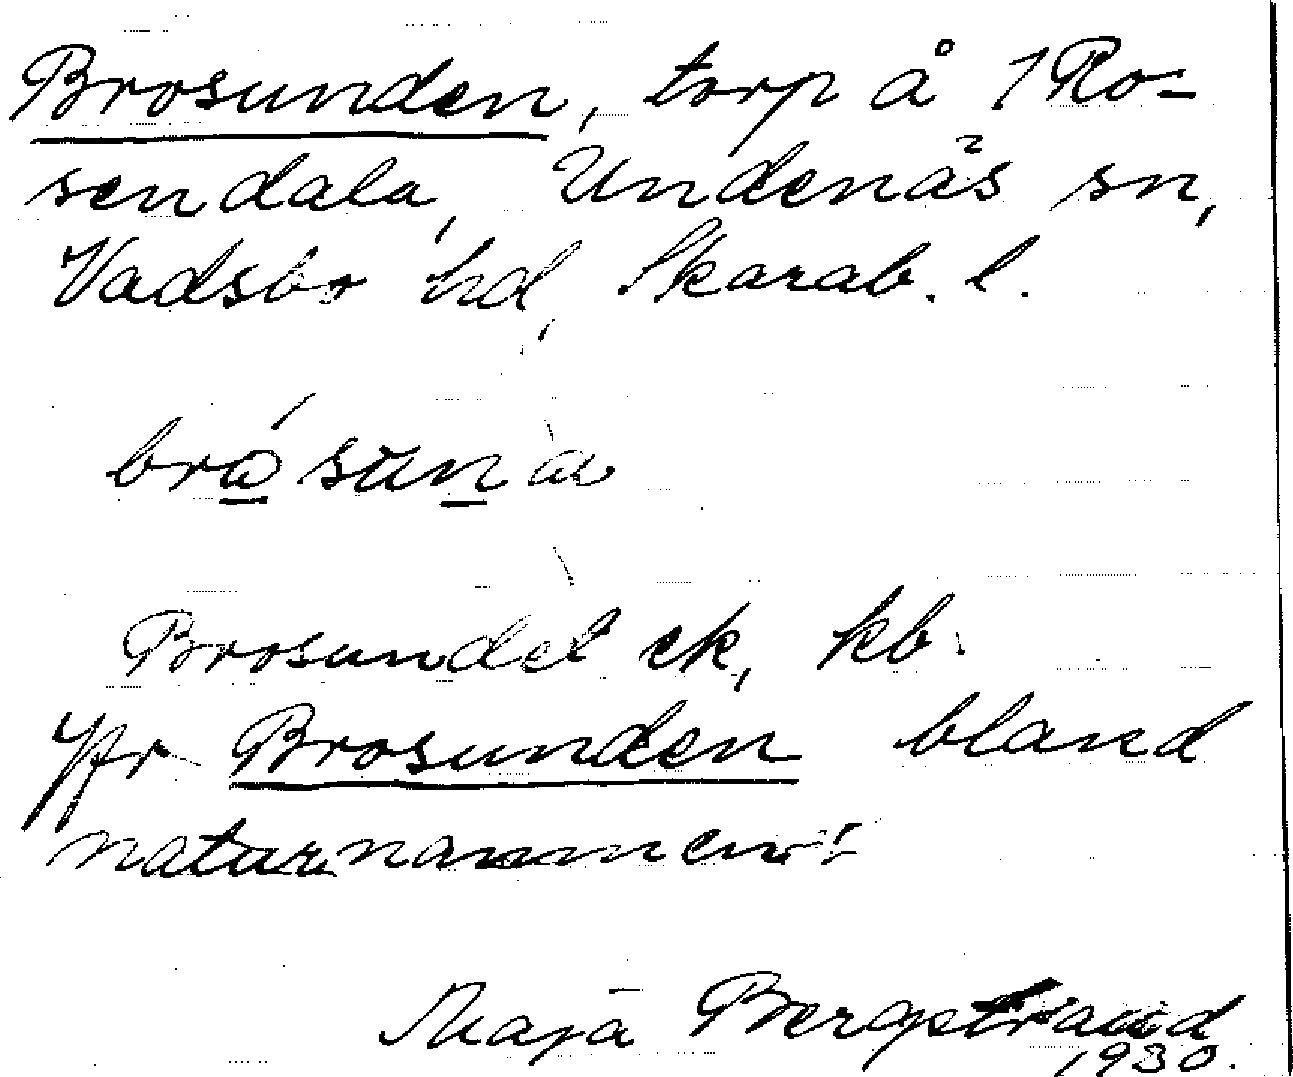 Brosunden, torp å 1 Ro-
sendala, Undenäs sn,
Vadsbo hd, Skarab. l.
Brosundet ek, kb.
Jfr Brosunden bland
naturnamnen!
Maja Bergstrand
1930.